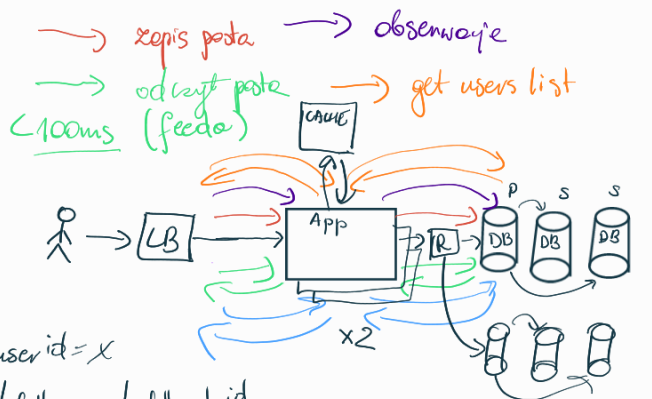 zapis posta
obserwuje
odczyt posta
get users list
<100ms (feeda)
CACHE
App
P
S
S
LB
R
DB
DB
DB
x2
user id = x